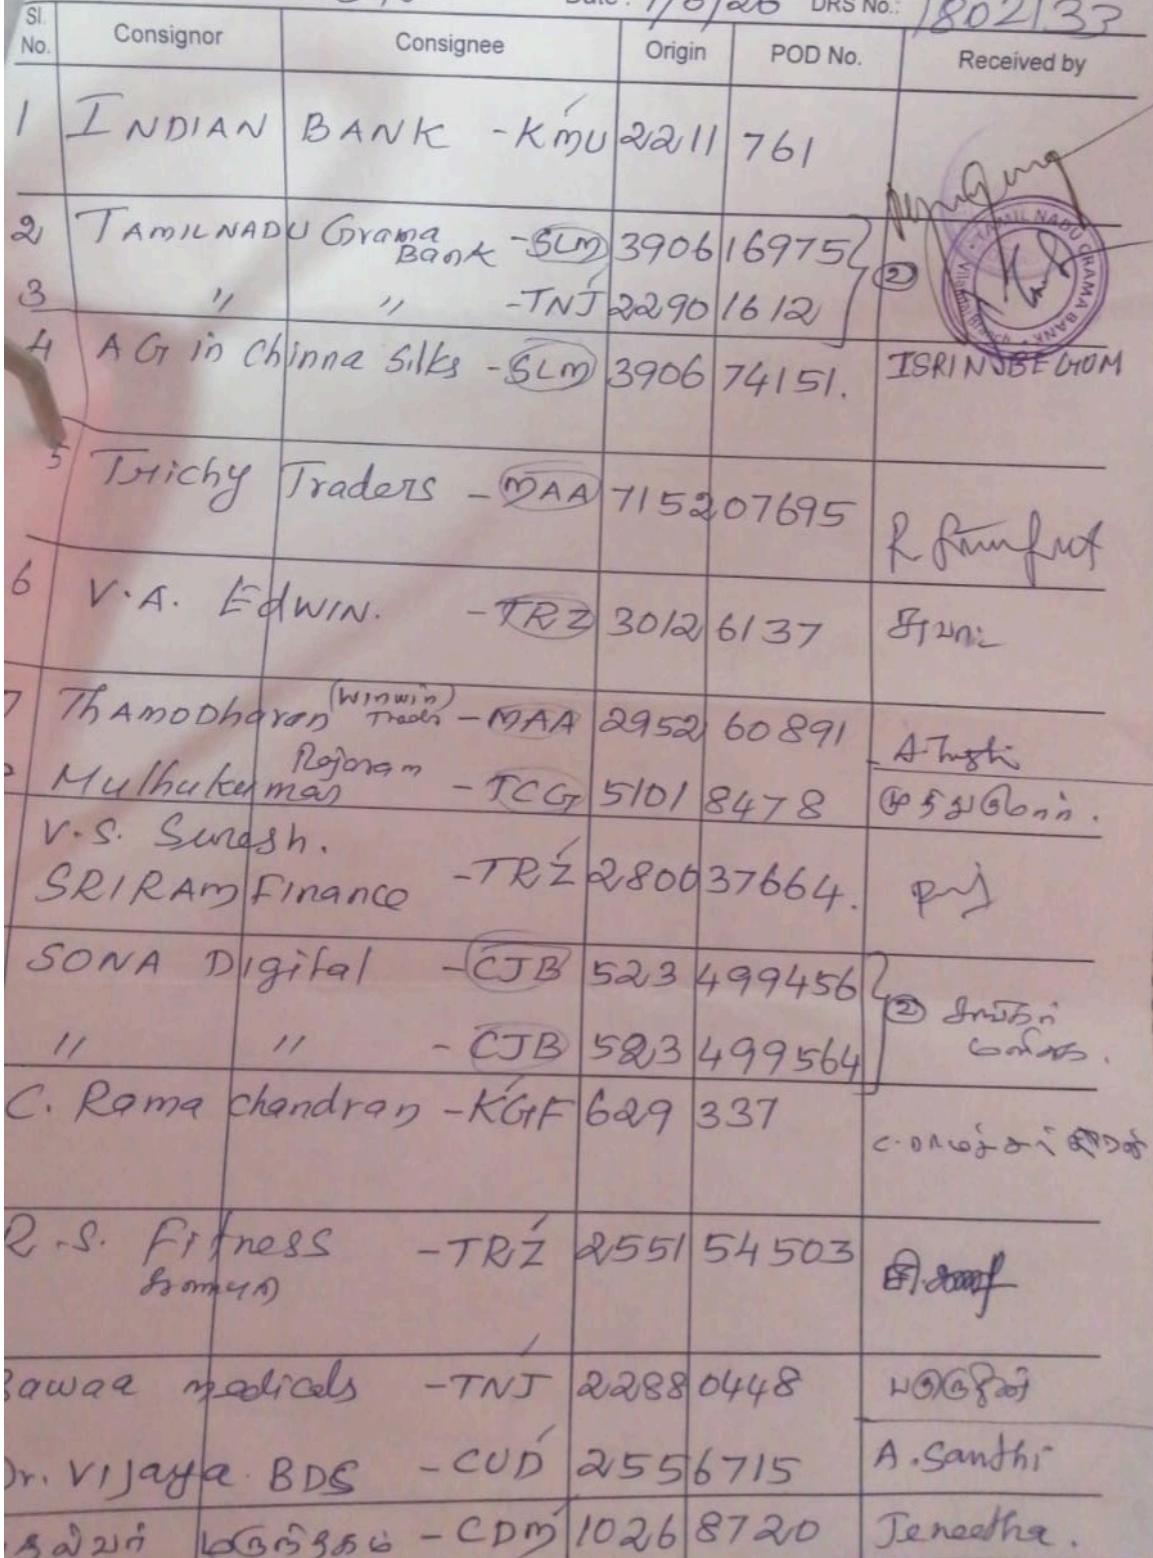 Date : 7/6/26 DRS No.: 1802133
Sl. No. Consignor Consignee Origin POD No. Received by
1 INDIAN BANK - KMU 2211 761
2 TAMILNADU Grama Bank - SLM 3906 16975
3 " " - TNJ 2290 1612 2
TAMIL NADU GRAMA BANK
4 AG in Chinna Silks - SLM 3906 74151. ISRIN BEGUM
5 Trichy Traders - MAA 715207695 R
6 V.A. Edwin. - TRZ 3012 6137
7 Thamodharan (Winwin Trader) - MAA 2952 60891
Muthukumar Rajaram - TCG 5101 8478
V.S. Suresh.
SRIRAM Finance - TRZ 2800 37664.
SONA Digital - CJB 523 499456
" " - CJB 523 499564 2
C. Rama chandran - KGF 629 337
R.S. Fitness - TRZ 2551 54503
Bawaa medicals - TNJ 2288 0448
Dr. Vijaya BDS - CUD 2556715 A. Santhi
மருந்தகம் - CDM 10268720 Jeneetha.